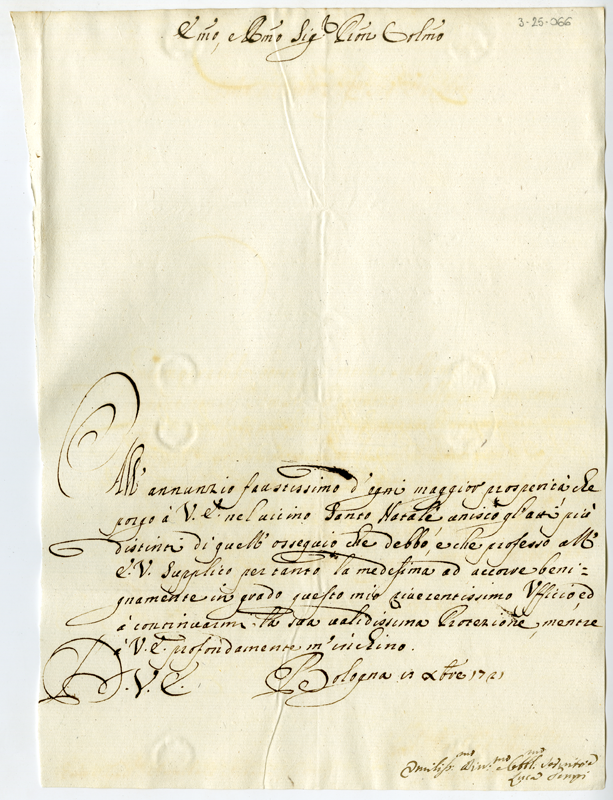 3-25-066
Emo, e Rmo Sig.r Pron Colmo
All' annunzio faustissimo d'ogni maggior prosperità che
porgo à V. E. nel vicino Santo Natale unisco gl'atti più
distinti di quell' ossequio che debbo, e che professo all'
E. V. Supplico per tanto la medesima ad accorre beni-
gnamente in grado questo mio riverentissimo Ufficio, ed
à continuarmi la sua validissima Protezione, mentre
à V. E. profondamente m'inchino.
D. V. E. Bologna Xbre 1721
Umiliss.mo Div.mo e Obbl.mo Servitore
Luca